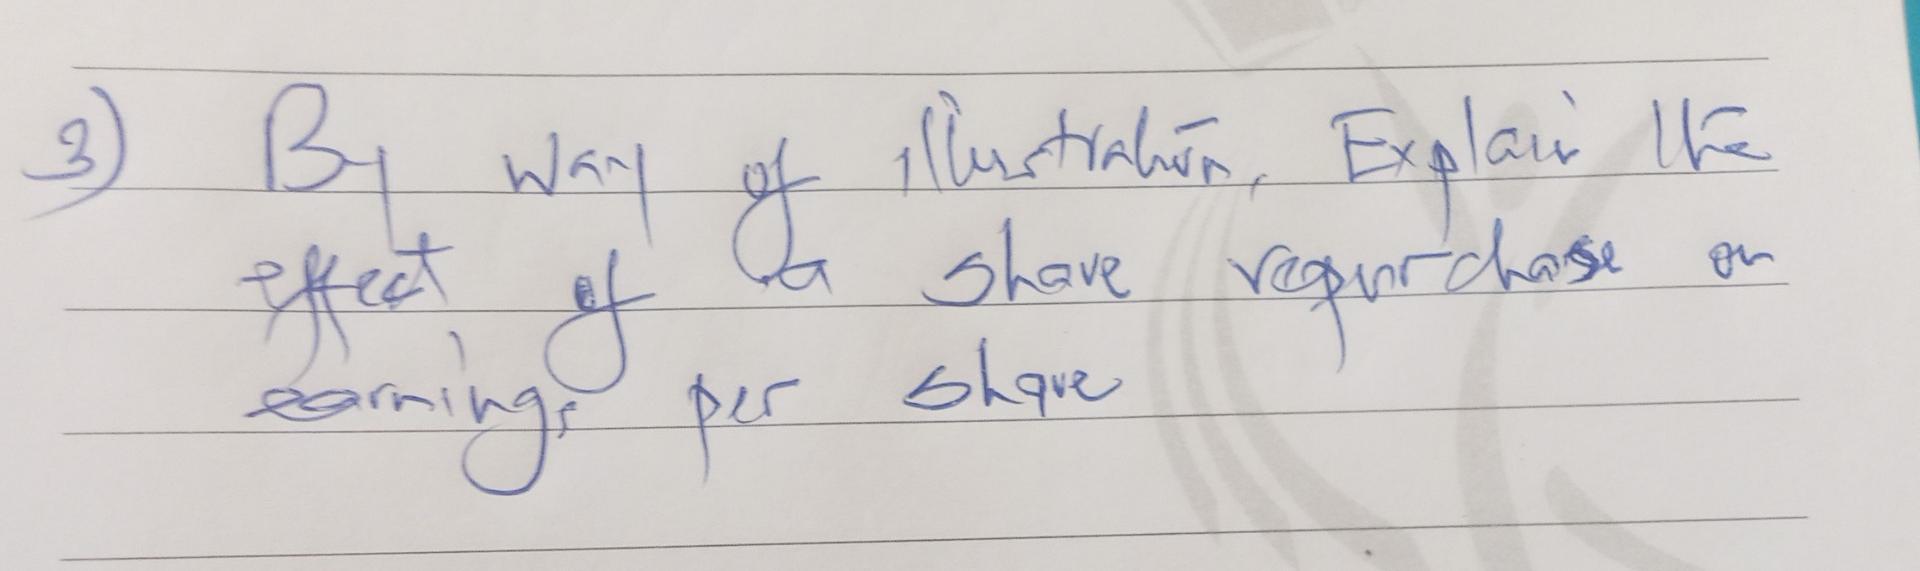 3) By way of illustration, Explain the
effect of a share repurchase on
earnings per share